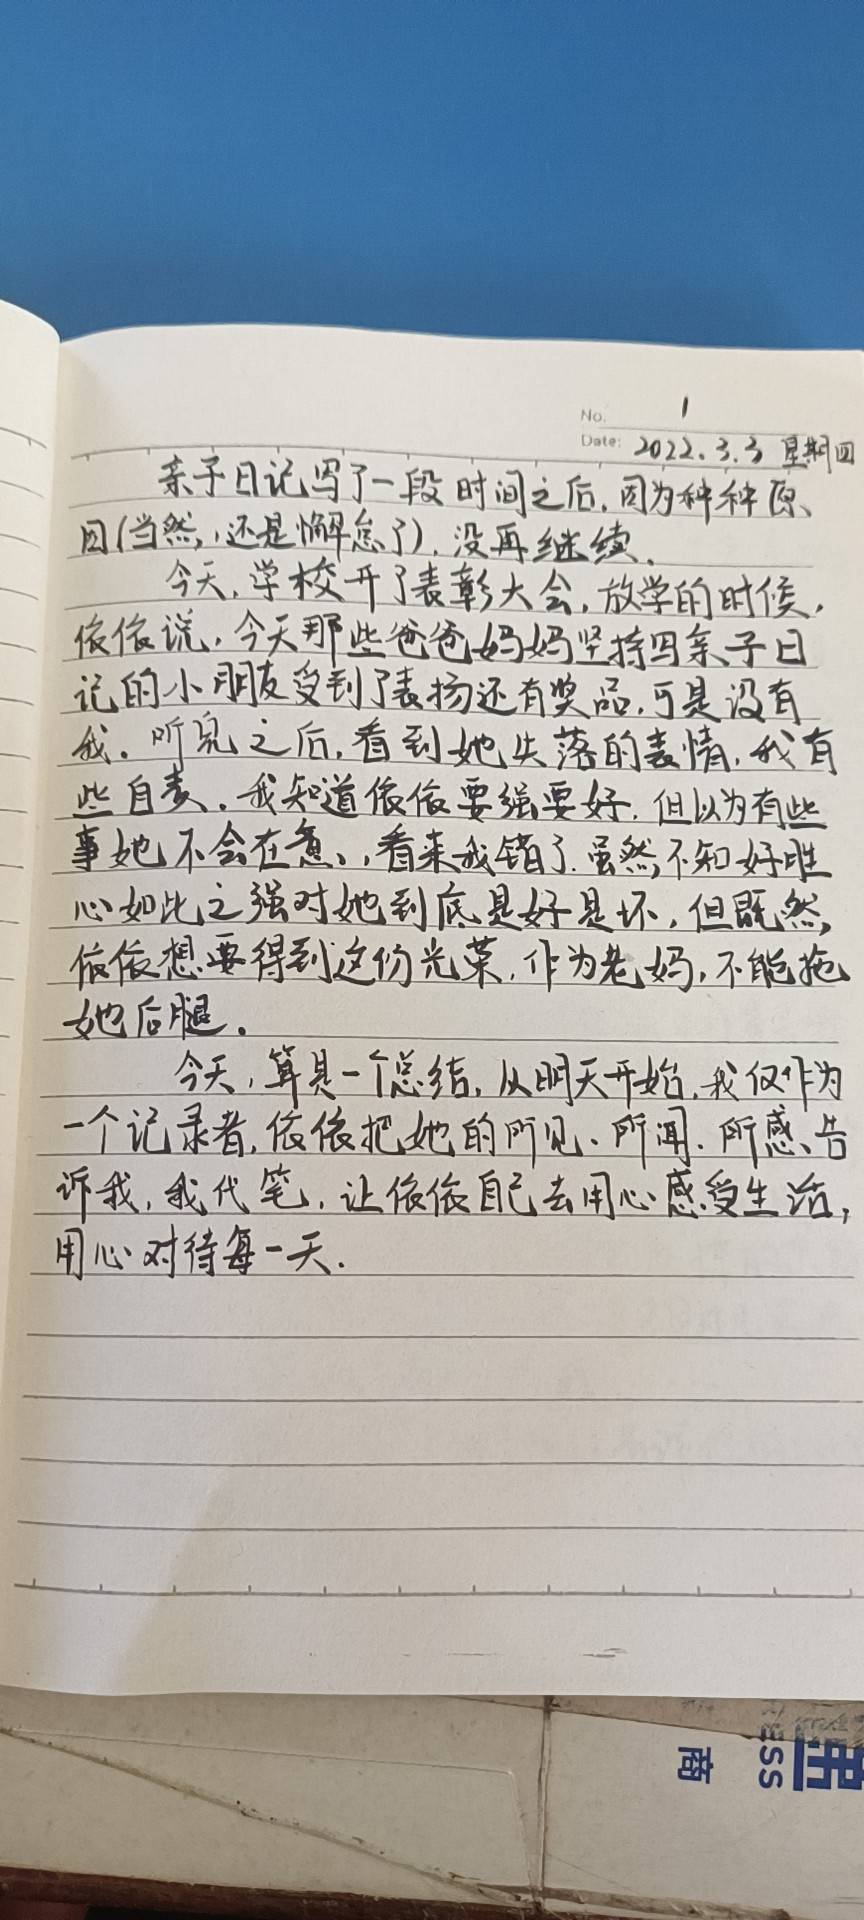 No. 1
Date: 2022.3.3 星期四
亲子日记写了一段时间之后,因为种种原
因(当然,还是懈怠了),没再继续.
今天,学校开了表彰大会,放学的时候,
依依说,今天那些爸爸妈妈坚持写亲子日
记的小朋友受到了表扬还有奖品,可是没有
我.听完之后,看到她失落的表情,我有
些自责.我知道依依要强要好,但以为有些
事她不会在意,看来我错了.虽然,不知好胜
心如此之强对她到底是好是坏,但既然,
依依想要得到这份光荣,作为老妈,不能拖
她后腿.
今天,算是一个总结,从明天开始,我仅作为
一个记录者,依依把她的所见、所闻、所感、告
诉我,我代笔,让依依自己去用心感受生活,
用心对待每一天.
商
ESS